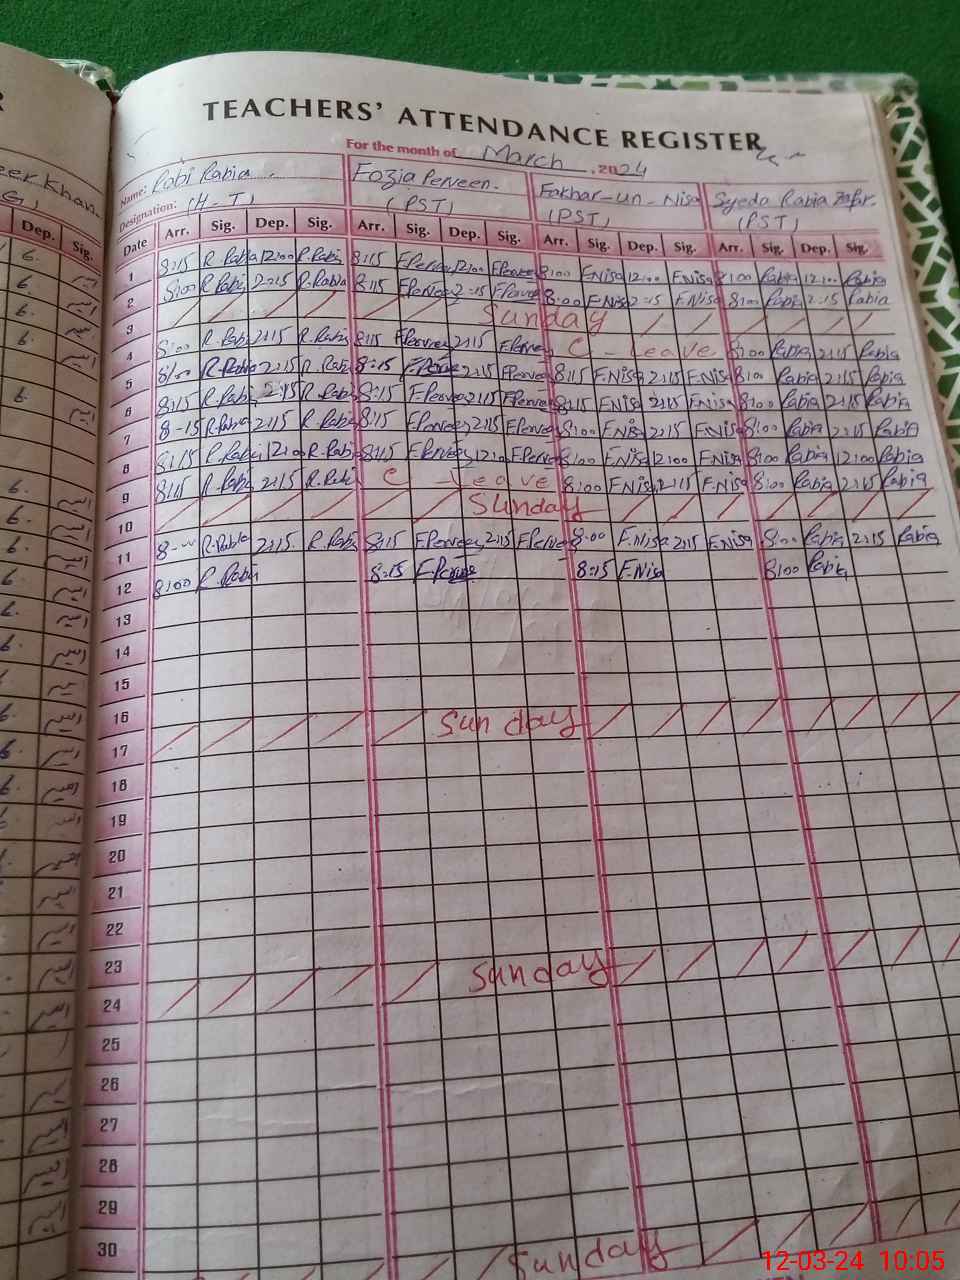 TEACHERS' ATTENDANCE REGISTER
For the month of March, 2024
Name: Rabi Rabia Fozia Perveen. Fakhar-un-Nisa Syeda Rabia Zafar.
Designation: (H-T) (PST) (PST) (PST)
eer Khan.
Dep. Sig.
Date Arr. Sig. Dep. Sig. Arr. Sig. Dep. Sig. Arr. Sig. Dep. Sig. Arr. Sig. Dep. Sig.
1 8:15 R.Rabia 12:00 R.Rabia 8:15 F.Perveen 12:00 F.Perveen 8:00 F.Nisa 12:00 F.Nisa 8:00 Rabia 12:00 Rabia
2 8:00 R.Rabi 2:15 R.Rabia 8:15 F.Perveen 2:15 F.Perveen 8:00 F.Nisa 2:15 F.Nisa 8:00 Rabia 2:15 Rabia
3 Sunday
4 8:00 R.Rabi 2:15 R.Rabia 8:15 F.Perveen 2:15 F.Perveen C-Leave 8:00 Rabia 2:15 Rabia
5 8:00 R.Rabia 2:15 R.Rabi 8:15 2:15 F.Perveen 8:15 F.Nisa 2:15 F.Nisa 8:00 Rabia 2:15 Rabia
6 8:15 R.Rabi 2:15 R.Rabia 8:15 F.Perveen 2:15 F.Perveen 8:15 F.Nisa 2:15 F.Nisa 8:00 Rabia 2:15 Rabia
7 8-15 R.Rabia 2:15 R.Rabia 8:15 F.Perveen 2:15 F.Perveen 8:00 F.Nisa 2:15 F.Nisa 8:00 Rabia 2:15 Rabia
8 8:15 R.Rabi 12:00 R.Rabi 8:15 F.Perveen 12:00 F.Perveen 8:00 F.Nisa 12:00 F.Nisa 8:00 Rabia 12:00 Rabia
9 8:15 R.Rabi 2:15 R.Rabi C-Leave 8:00 F.Nisa 2:15 F.Nisa 8:00 Rabia 2:15 Rabia
10 Sunday
11 8-00 R.Rabia 2:15 R.Rabi 8:15 F.Perveen 2:15 F.Perveen 8:00 F.Nisa 2:15 F.Nisa 8:00 Rabia 2:15 Rabia
12 8:00 R.Rabi 8:15 8:15 F.Nisa 8:00 Rabia
13
14
15
16
17 Sunday
18
19
20
21
22
23
24 Sunday
25
26
27
28
29
30
Sunday
12-03-24 10:05